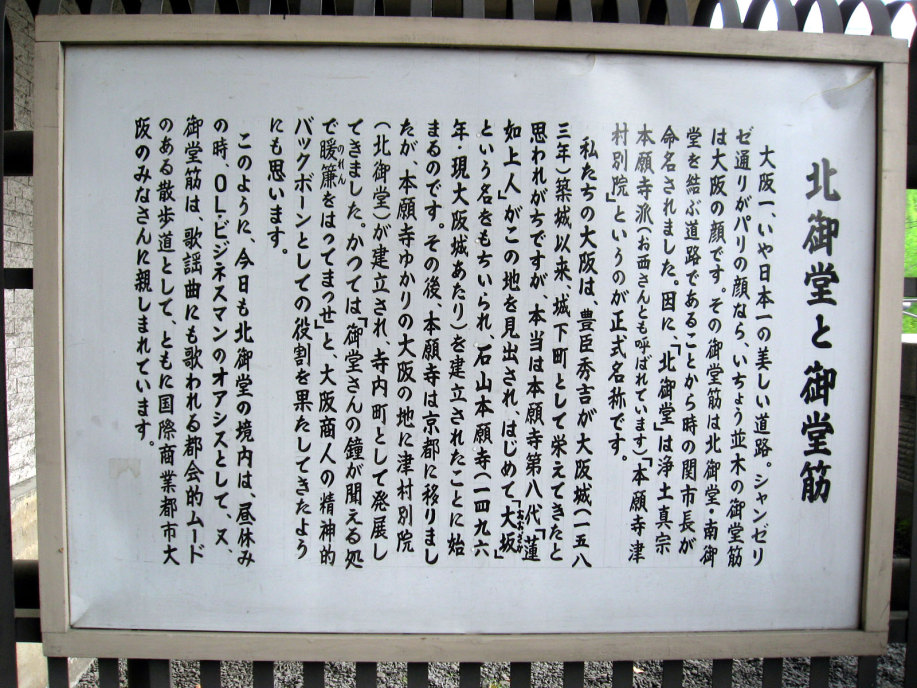 北御堂と御堂筋
大阪一、いや日本一の美しい道路。シャンゼリ
ゼ通りがパリの顔なら、いちょう並木の御堂筋
は大阪の顔です。その御堂筋は北御堂・南御
堂を結ぶ道路であることから時の関市長が
命名されました。因に、「北御堂」は浄土真宗
本願寺派(お西さんとも呼ばれています)「本願寺津
村別院」というのが正式名称です。
私たちの大阪は、豊臣秀吉が大阪城(一五八
三年)築城以来、城下町として栄えてきたと
思われがちですが、本当は本願寺第八代「蓮
如上人」がこの地を見出され、はじめて、「大坂」
という名をもちいられ、石山本願寺(一四九六
年・現大阪城あたり)を建立されたことに始
まるのです。その後、本願寺は京都に移りまし
たが、本願寺ゆかりの大阪の地に津村別院
(北御堂)が建立され、寺内町として発展し
てきました。かつては「御堂さんの鐘が聞える処
で暖簾をはってまっせ」と、大阪商人の精神的
バックボーンとしての役割を果たしてきたよう
にも思います。
このように、今日も北御堂の境内は、昼休み
の時、OL・ビジネスマンのオアシスとして、又、
御堂筋は、歌謡曲にも歌われる都会的ムード
のある散歩道として、ともに国際商業都市大
阪のみなさんに親しまれています。